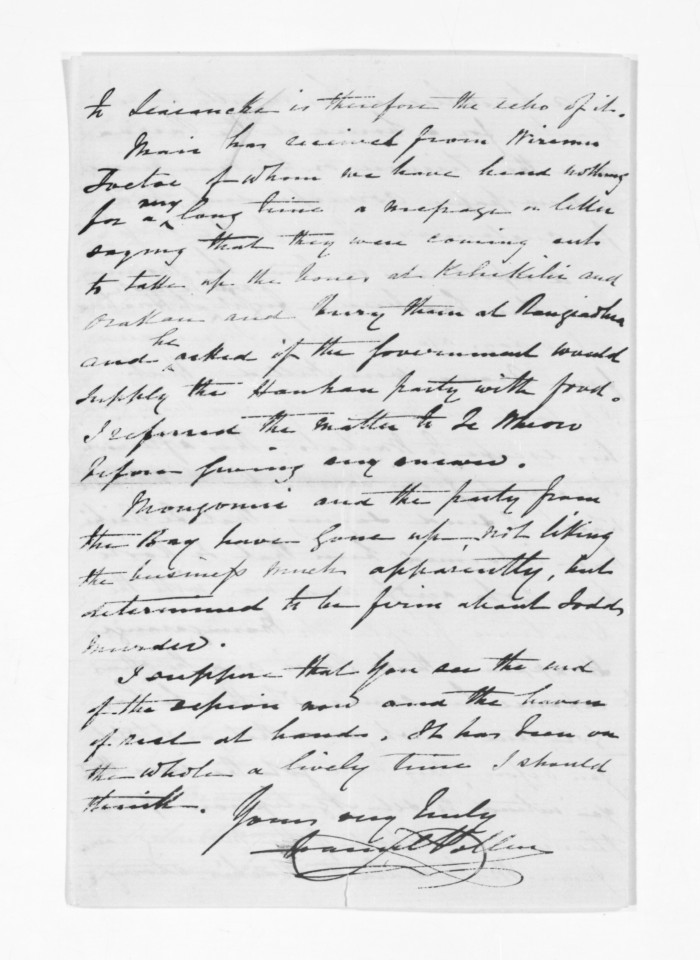 to Searancke is therefore the echo of it.
Mair has received from Wiremu
Toetoe of whom we have heard nothing
for a very long time a message or letter
saying that they were coming out
to take up the bones at Kihikihi and
Orakau and bury them at Rangiaohia
and he asked if the Government would
supply the Hauhau party with food.
I referred the matter to Te Wheoro
before giving any answer.
and the party from
the Bay have gone up, not liking
the business much apparently, but
determined to be firm about Todds
murder.
I suppose that you see the end
of the session now and the haven
of rest at hand. It has been on
the whole a lively time I should
think.
Yours very truly
Daniel Pollen